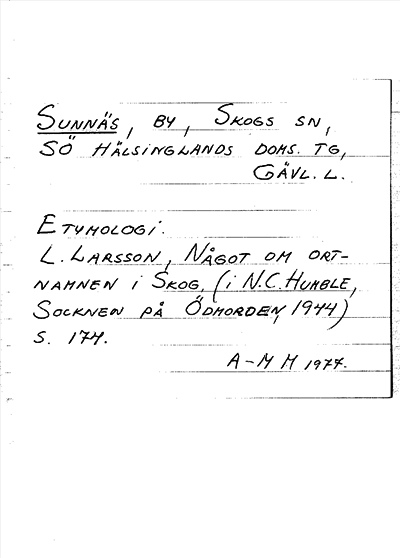 SUNNÄS, BY, SKOGS SN,
SÖ HÄLSINGLANDS DOMS. TG,
GÄVL. L.
ETYMOLOGI.
L. LARSSON, NÅGOT OM ORT-
NAMNEN I SKOG, (I N.C. HUMBLE,
SOCKNEN PÅ ÖDMORDEN, 1944)
S. 174.
A-M H 1977.